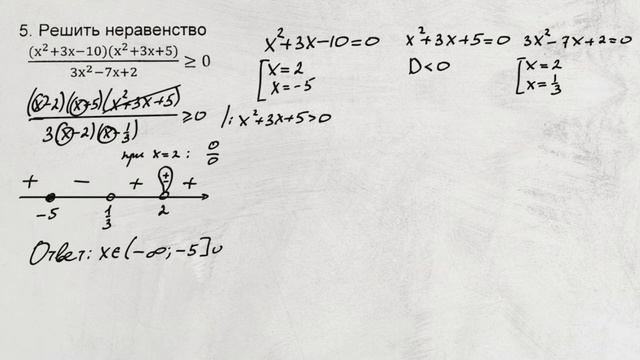 5. Решить неравенство
(x²+3x−10)(x²+3x+5)
3x²−7x+2
≥ 0
x²+3x−10=0
x=2
x=−5
x²+3x+5=0
D<0
3x²−7x+2=0
x=2
x=1/3
(x−2)(x+5)(x²+3x+5)
3(x−2)(x−1/3)
≥0
/: x²+3x+5>0
при x=2: 0/0
+ − + ± +
−5 1/3 2
Ответ: x∈(−∞;−5]∪